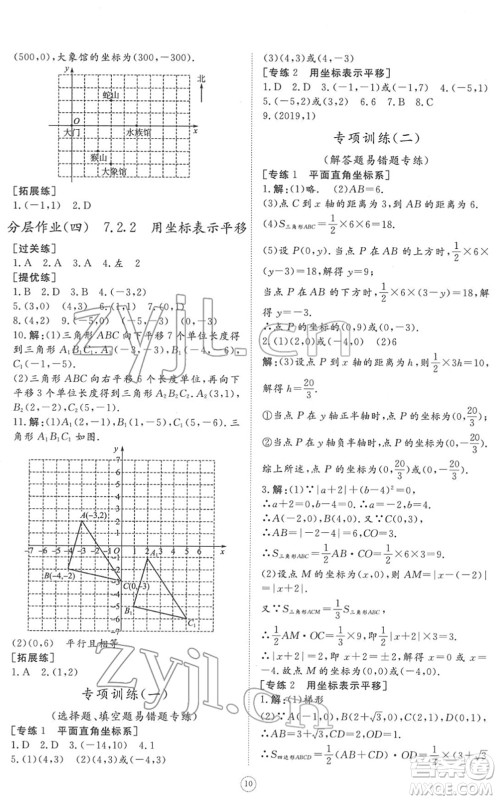 (500,0),大象馆的坐标为(300,-300).
y
北
蛇山
O
大门
水族馆
x
猴山
大象馆
[拓展练]
1.(-1,1) 2.D
分层作业(四) 7.2.2 用坐标表示平移
[过关练]
1.A 2.A 3.A 4.左 2
[提优练]
1.B 2.D 3.B 4.D
5.(3,0) (4,3) 6.(1,1) 7.(-5,0)
8.(4,2) 9.(-5,0) (-5,-3)
10.解:(1)三角形ABC向下平移7个单位长度得
到三角形A₁B₁C₁,A₁(-3,-3),B₁(-4,-6),
C₁(-1,-5)
(2)三角形ABC向右平移6个单位长度,再向下平
移3个单位长度得到三角形A₂B₂C₂,A₂(3,1),
B₂(2,-2),C₂(5,-1).
11.解:(1)三角形ABC、
三角形A₁B₁C₁如图.
y
7
6
5
4
3
2
1
A(-3,2)
-7 -6 -5 -4 -3 -2 -1 O 1 2 3 4 5 6 7 x
B(-4,-2)
C(0,-3)
A₁
B₁
C₁
(2)(0,6) 平行且相等
[拓展练]
1.A 2.(1,2)
专项训练(一)
(选择题、填空题易错题专练)
[专练1 平面直角坐标系]
1.D 2.D 3.(-14,10) 4.-1
5.(1)(4,3) (2)(3,4)或(3,-4)
(3)(4,3)或(4,-3)
[专练2 用坐标表示平移]
1.D 2.(-1,-1)或(-1,7) 3.D 4.(-1,5)
5.(-5,2)或(3,2) 6.6 7.B 8.D
9.(2019,1)
专项训练(二)
(解答题易错题专练)
[专练1 平面直角坐标系]
1.解:(1)略. (2)AB=6.
(3)点C到x轴的距离为3,到y轴的距离为1.
(4)S三角形ABC=1/2×6×6=18.
(5)设点P到AB的距离为h,则1/2×6×h=18,
解得h=6.
当点P在AB的下方时,1/2×6×(3-y)=18,
解得y=-3.
当点P在AB的上方时,1/2×6×(y-3)=18,
解得y=9.
综上所述,点P的坐标为(0,9)或(0,-3).
2.(1)(2,0)或(-4,0) (2)6
(3)设点P到x轴的距离为h,则1/2×3h=10,
解得h=20/3.
①当点P在y轴正半轴时,点P的坐标为(0,20/3);
②当点P在y轴负半轴时,点P的坐标为
(0,-20/3).
综上所述,点P的坐标为(0,20/3)或(0,-20/3).
3.解:(1)∵|a+2|+|b-4|=0,
∴a+2=0,b-4=0.
∴a=-2,b=4.
∴点A(-2,0),点B(4,0).
又∵点C(0,3),
∴AB=|-2-4|=6,CO=3.
∴S三角形ABC=1/2AB·CO=1/2×6×3=9.
(2)设点M的坐标为(x,0),
则AM=|x-(-2)|=|x+2|.
又∵S三角形ACM=1/3S三角形ABC,
∴1/2AM·OC=1/3×9,
∴1/2|x+2|×3=3.
∴|x+2|=2.即x+2=±2,
解得x=0或-4.
故点M的坐标为(0,0)或(-4,0).
[专练2 用坐标表示平移]
1.解:(1)梯形
(2)∵A(2+√3,0),B(2+√3,√3),
C(√3,√3),D(√3,0),
∴AB=√3,OD=√3,CD=√3.
∴S四边形ABCD=1/2(AB+OD)·CD=1/2×(3+√3
10
zyjl.cn
zyjl.cn
作业精灵
答案圈
MXQE.COM